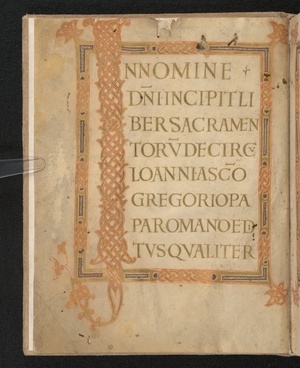 IN NOMINE +
DN̄I INCIPIT LI
BER SACRAMEN
TORV̄ DE CIRC
LO ANNI A SC̄O
GREGORIO PA
PA ROMANO ED
TVS QVALITER